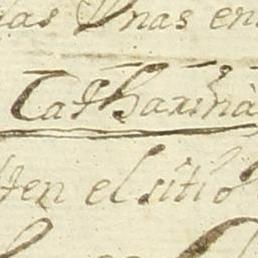 las Unas en
Catharina
ten el sitio